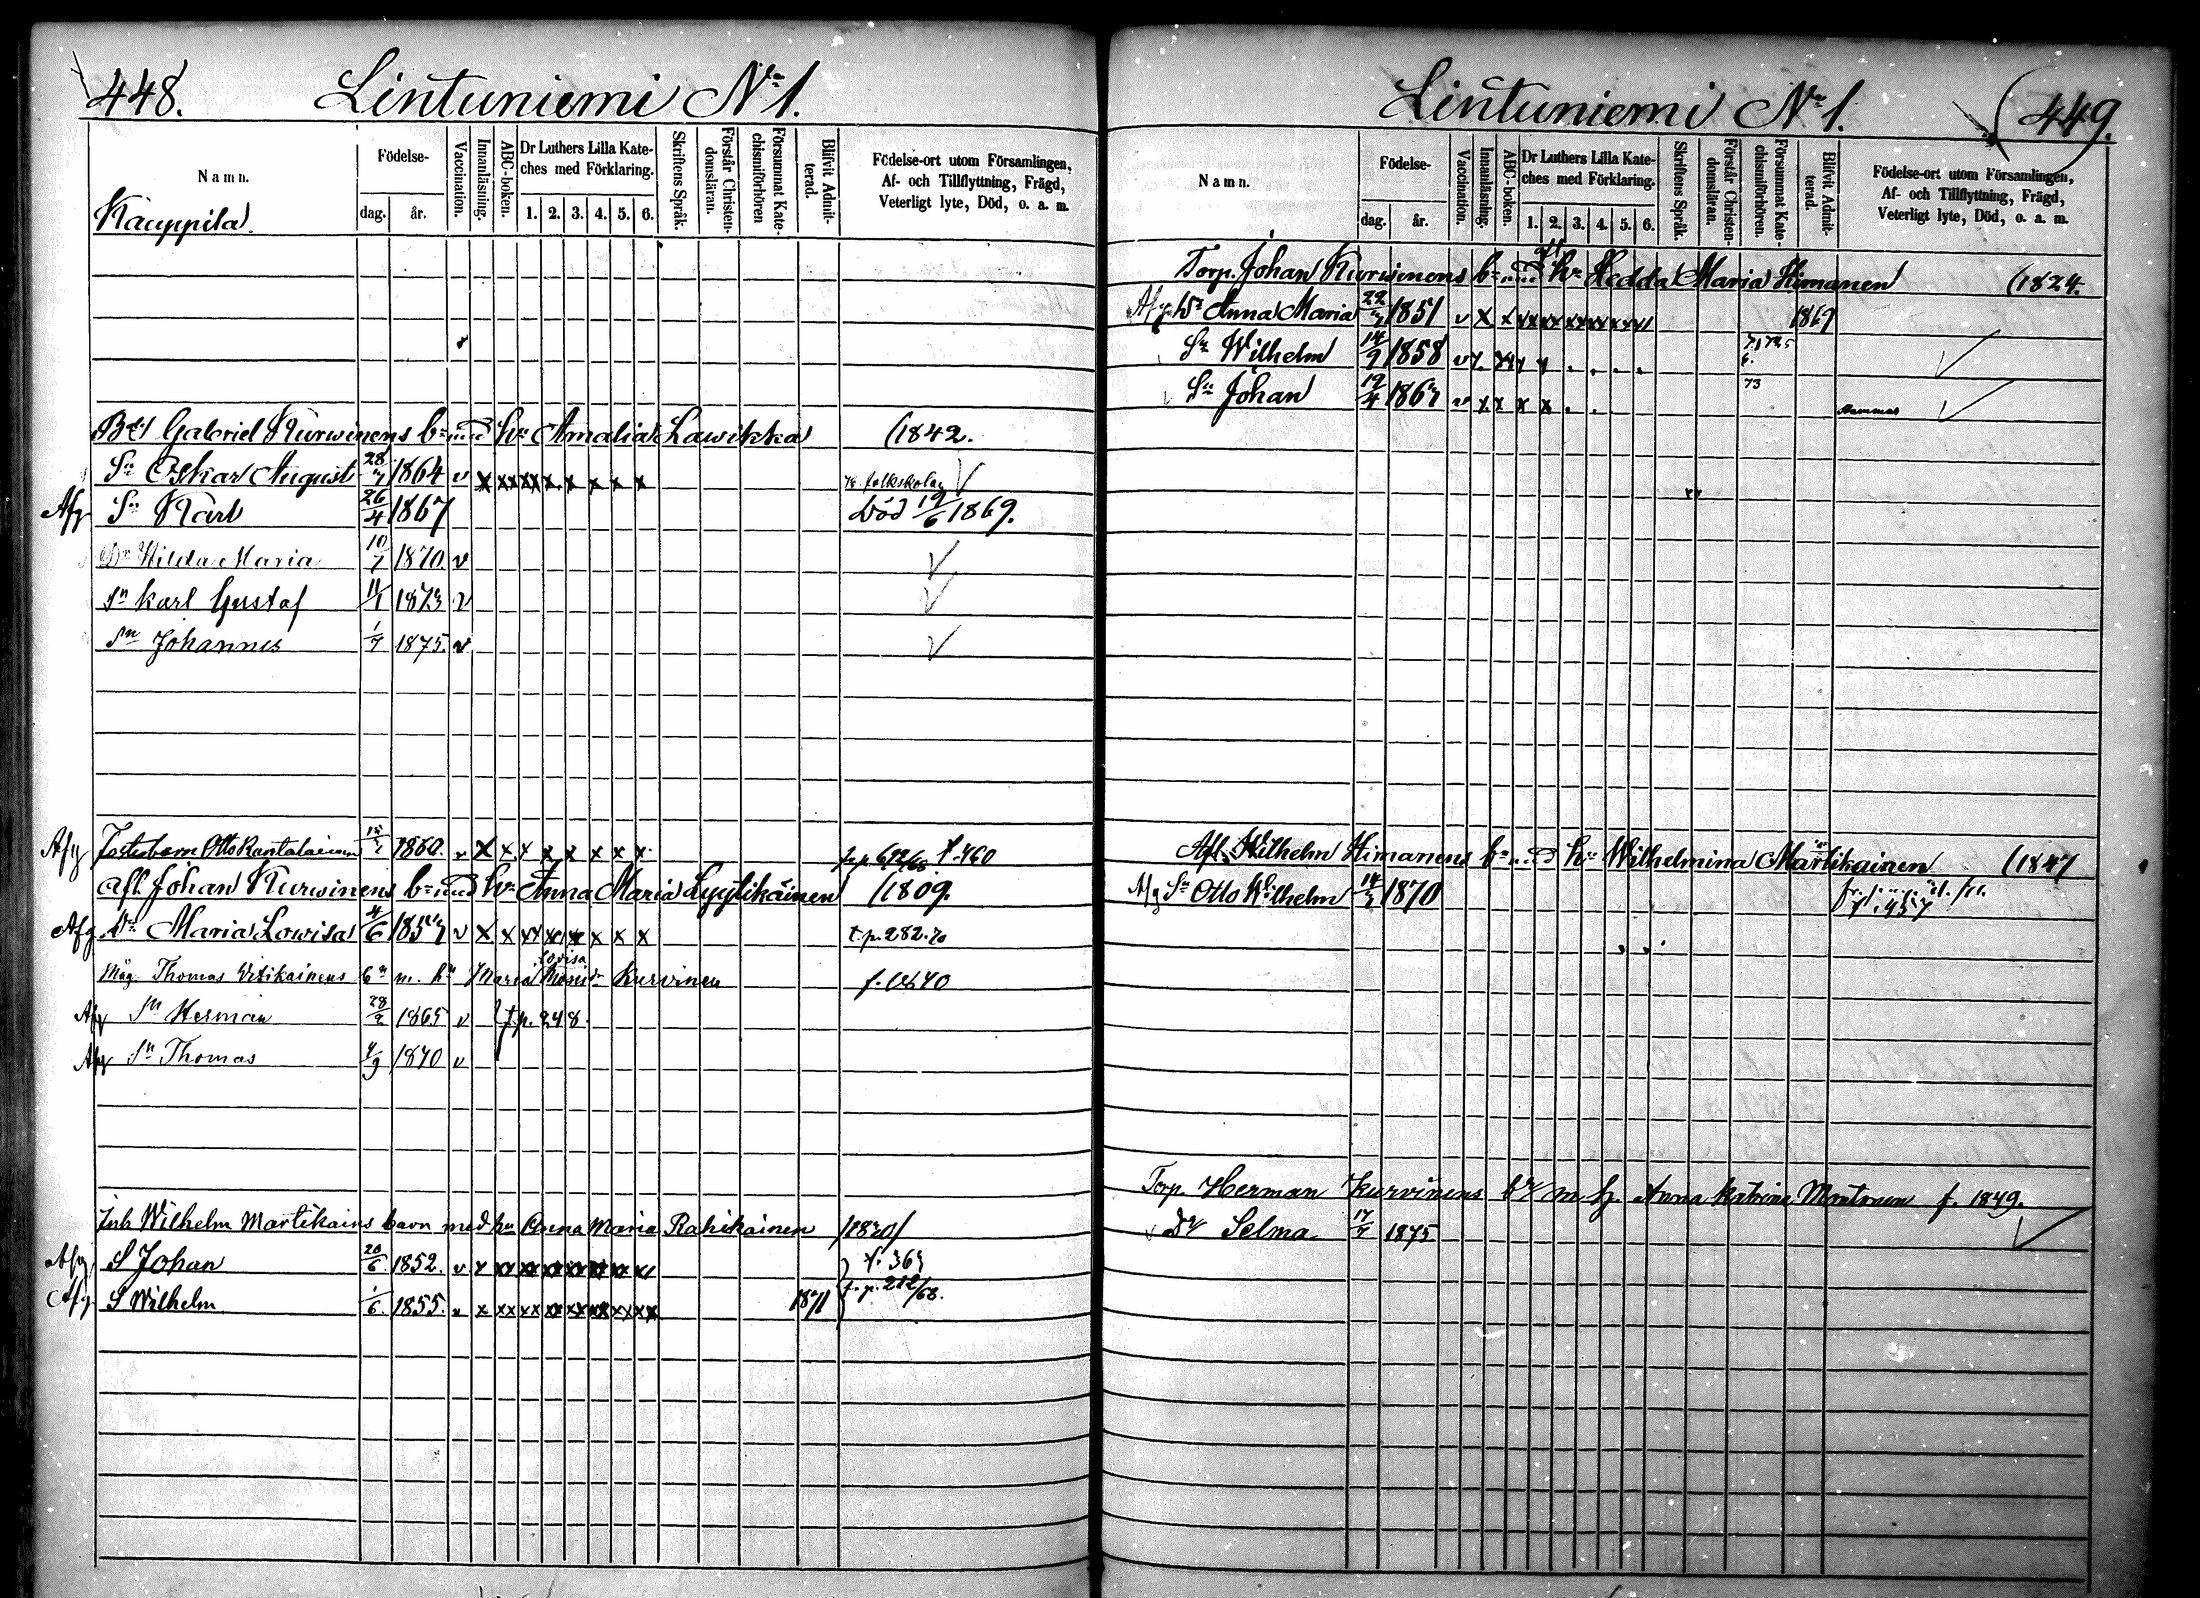 448. Lintuniemi No 1.
Namn.
Födelse-
dag. år.
Vaccination.
Innanläsning.
ABC-boken.
Dr Luthers Lilla Kate-
ches med Förklaring.
1. 2. 3. 4. 5. 6.
Skriftens Språk.
Förstår Christen-
domsläran.
Försummat Kate-
chismiförhören
Blifvit Admit-
terad.
Födelse-ort utom Församlingen,
Af- och Tillflyttning, Frägd,
Veterligt lyte, Död, o. a. m.
Kauppila.
Gabriel Kurwinens bn med hu Amalia Lawikka (1842.
Sn Oskar August 28 1864 v x xx xx x x x x x folkskolan
Afg Sn Karl 26/4 1867 Död 19/6 1869.
Dr Hilda Maria 10/7 1870 v
Sn Karl Gustaf 11/1 1873 v
Sn Johannes 1/7 1875. v
Afg Fosterbarn Otto Rantalainen 1860. v x x x x x x x x f. 460
Afl. Johan Kurwinens bn med hu Anna Maria Lyytikäinen (1809.
Afg Dr Maria Lowisa 4/6 1857 v x x xx xx x x x x t.p. 282.70
Måg Thomas Vitikainens bn m. hu Maria Lovisa Kurvinen f. 1840
Afg Sn Herman 28/2 1865 v t.p. 248.
Afg Sn Thomas 4/9 1870 v
Inh Wilhelm Martikains barn med hu Anna Maria Rahikainen /1820/
Afg S Johan 20/6 1852. v x xx xx xx xx xx xx xx t. 363
Afg S Wilhelm 1/6. 1855. v x xx xx xx xx xx xx xx 1871 t.p. 212/68.
Lintuniemi No 1. 449.
Namn.
Födelse-
dag. år.
Vaccination.
Innanläsning.
ABC-boken.
Dr Luthers Lilla Kate-
ches med Förklaring.
1. 2. 3. 4. 5. 6.
Skriftens Språk.
Förstår Christen-
domsläran.
Försummat Kate-
chismiförhören.
Blifvit Admit-
terad.
Födelse-ort utom Församlingen,
Af- och Tillflyttning, Frägd,
Veterligt lyte, Död, o. a. m.
Torp. Johan Kurwinens bn med hu Hedda Maria Himanen (1824.
Afg Dr Anna Maria 22 1851 v x x xx xx xx xx xx xx 1869
Sn Wilhelm 14/9 1858
Sn Johan 19/4 1867 v x x x x 73
Afl. Wilhelm Himanens bn med hu Wilhelmina Martikainen (1847
Afg Sn Otto Wilhelm 14 1870 457
Torp. Herman Kurvinens br m h. Anna Katrina f. 1849.
Dr Selma 17/7 1875